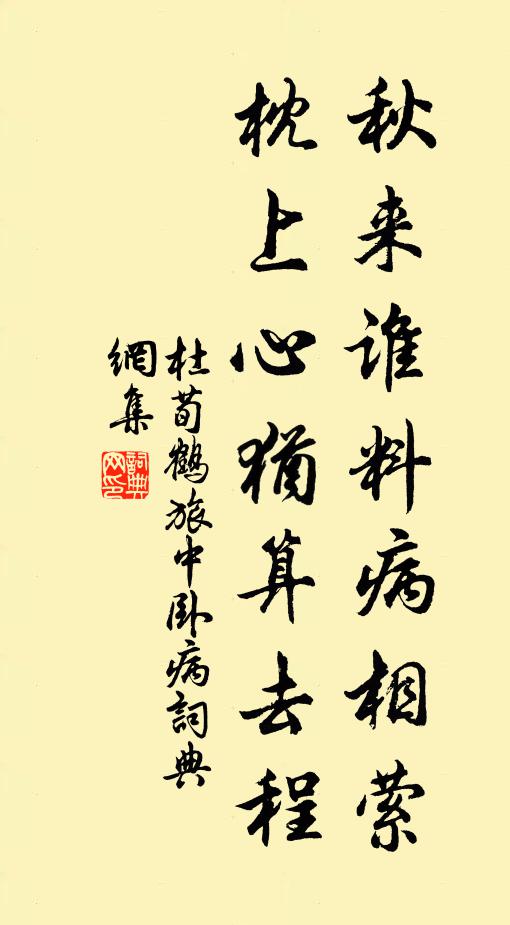 秋来谁料病相萦
枕上心犹算去程
杜荀鶴旅中卧病詞典
網集
詞典网印